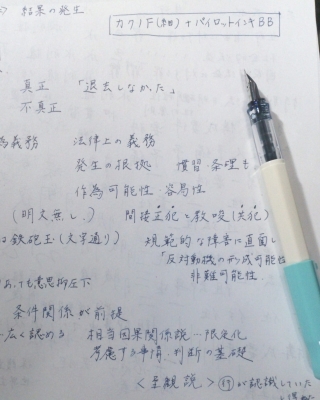 結果の発生
カクノF(細)+パイロットインキBB
真正 「退去しなかった」
不真正
為義務 法律上の義務
発生の根拠 慣習 条理も
作為可能性・容易性
(明文無し.) 間接正犯と教唆(共犯)
は鉄砲玉(文字通り) 規範的な障害に直面し
「反対動機の形成可能
あっても意思抑圧下 非難可能性.
条件関係が前提
広く認める 相当因果関係説…限定化
考慮する事情.判断の基礎
<主観説> 行が認識していた